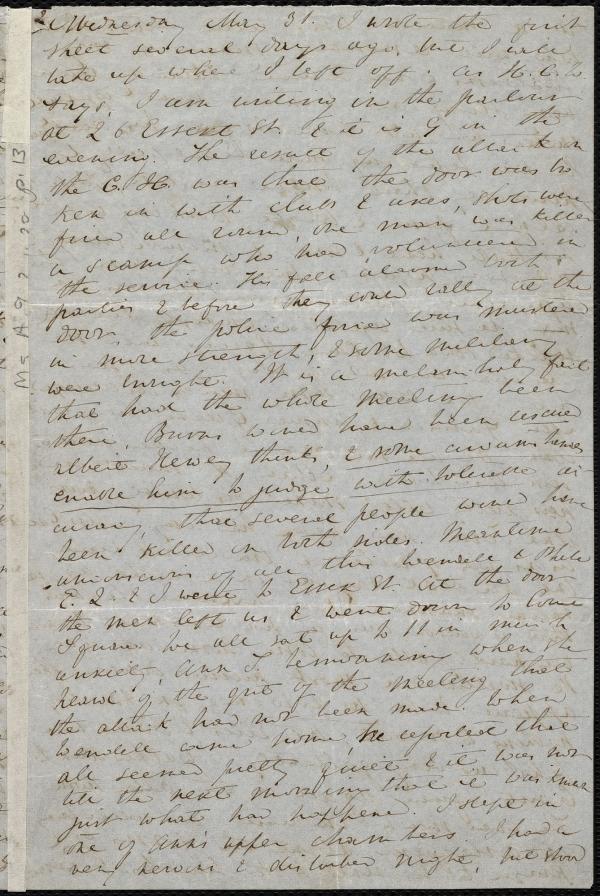 2 Wednesday May 31. I wrote the first
sheet several days ago, but I will
take up where I left off. as H. C. W.
says, I am writing in the parlour
at 26 Essex St. & it is 9 in the
evening. The result of the attack on
the C. H. was that the door was bro
ken in with clubs & axes, shots were
fired all round, one man was killed
a scamp who had volunteered in
the service. His fall alarmed both
parties & before they could rally at the
door, the police force was mustered
in more strength, & some military
were brought. It is a melancholy fact
that had the whole meeting been
there, Burns would have been rescued
albeit Hovey thinks, & some circumstances
enable him to judge with tolerable ac
curacy, that several people would have
been killed on both sides. Meantime
unconscious of all this Wendell & Phebe
E. Q. & I went to Essex St. At the door
the men left us & went down to Court
Square. We all sat up to 11 in much
anxiety, Ann T. bemoaning when she
heard of the of the meeting that
the attack had not been made. When
Wendell came home, he reported that
all seemed pretty quiet & it was not
till the next morning that it was known
just what had happened. I slept in
one of Ann's upper chambers. I had a
very nervous & disturbed night, but stood
Ms. A. 9. 2 p. 13